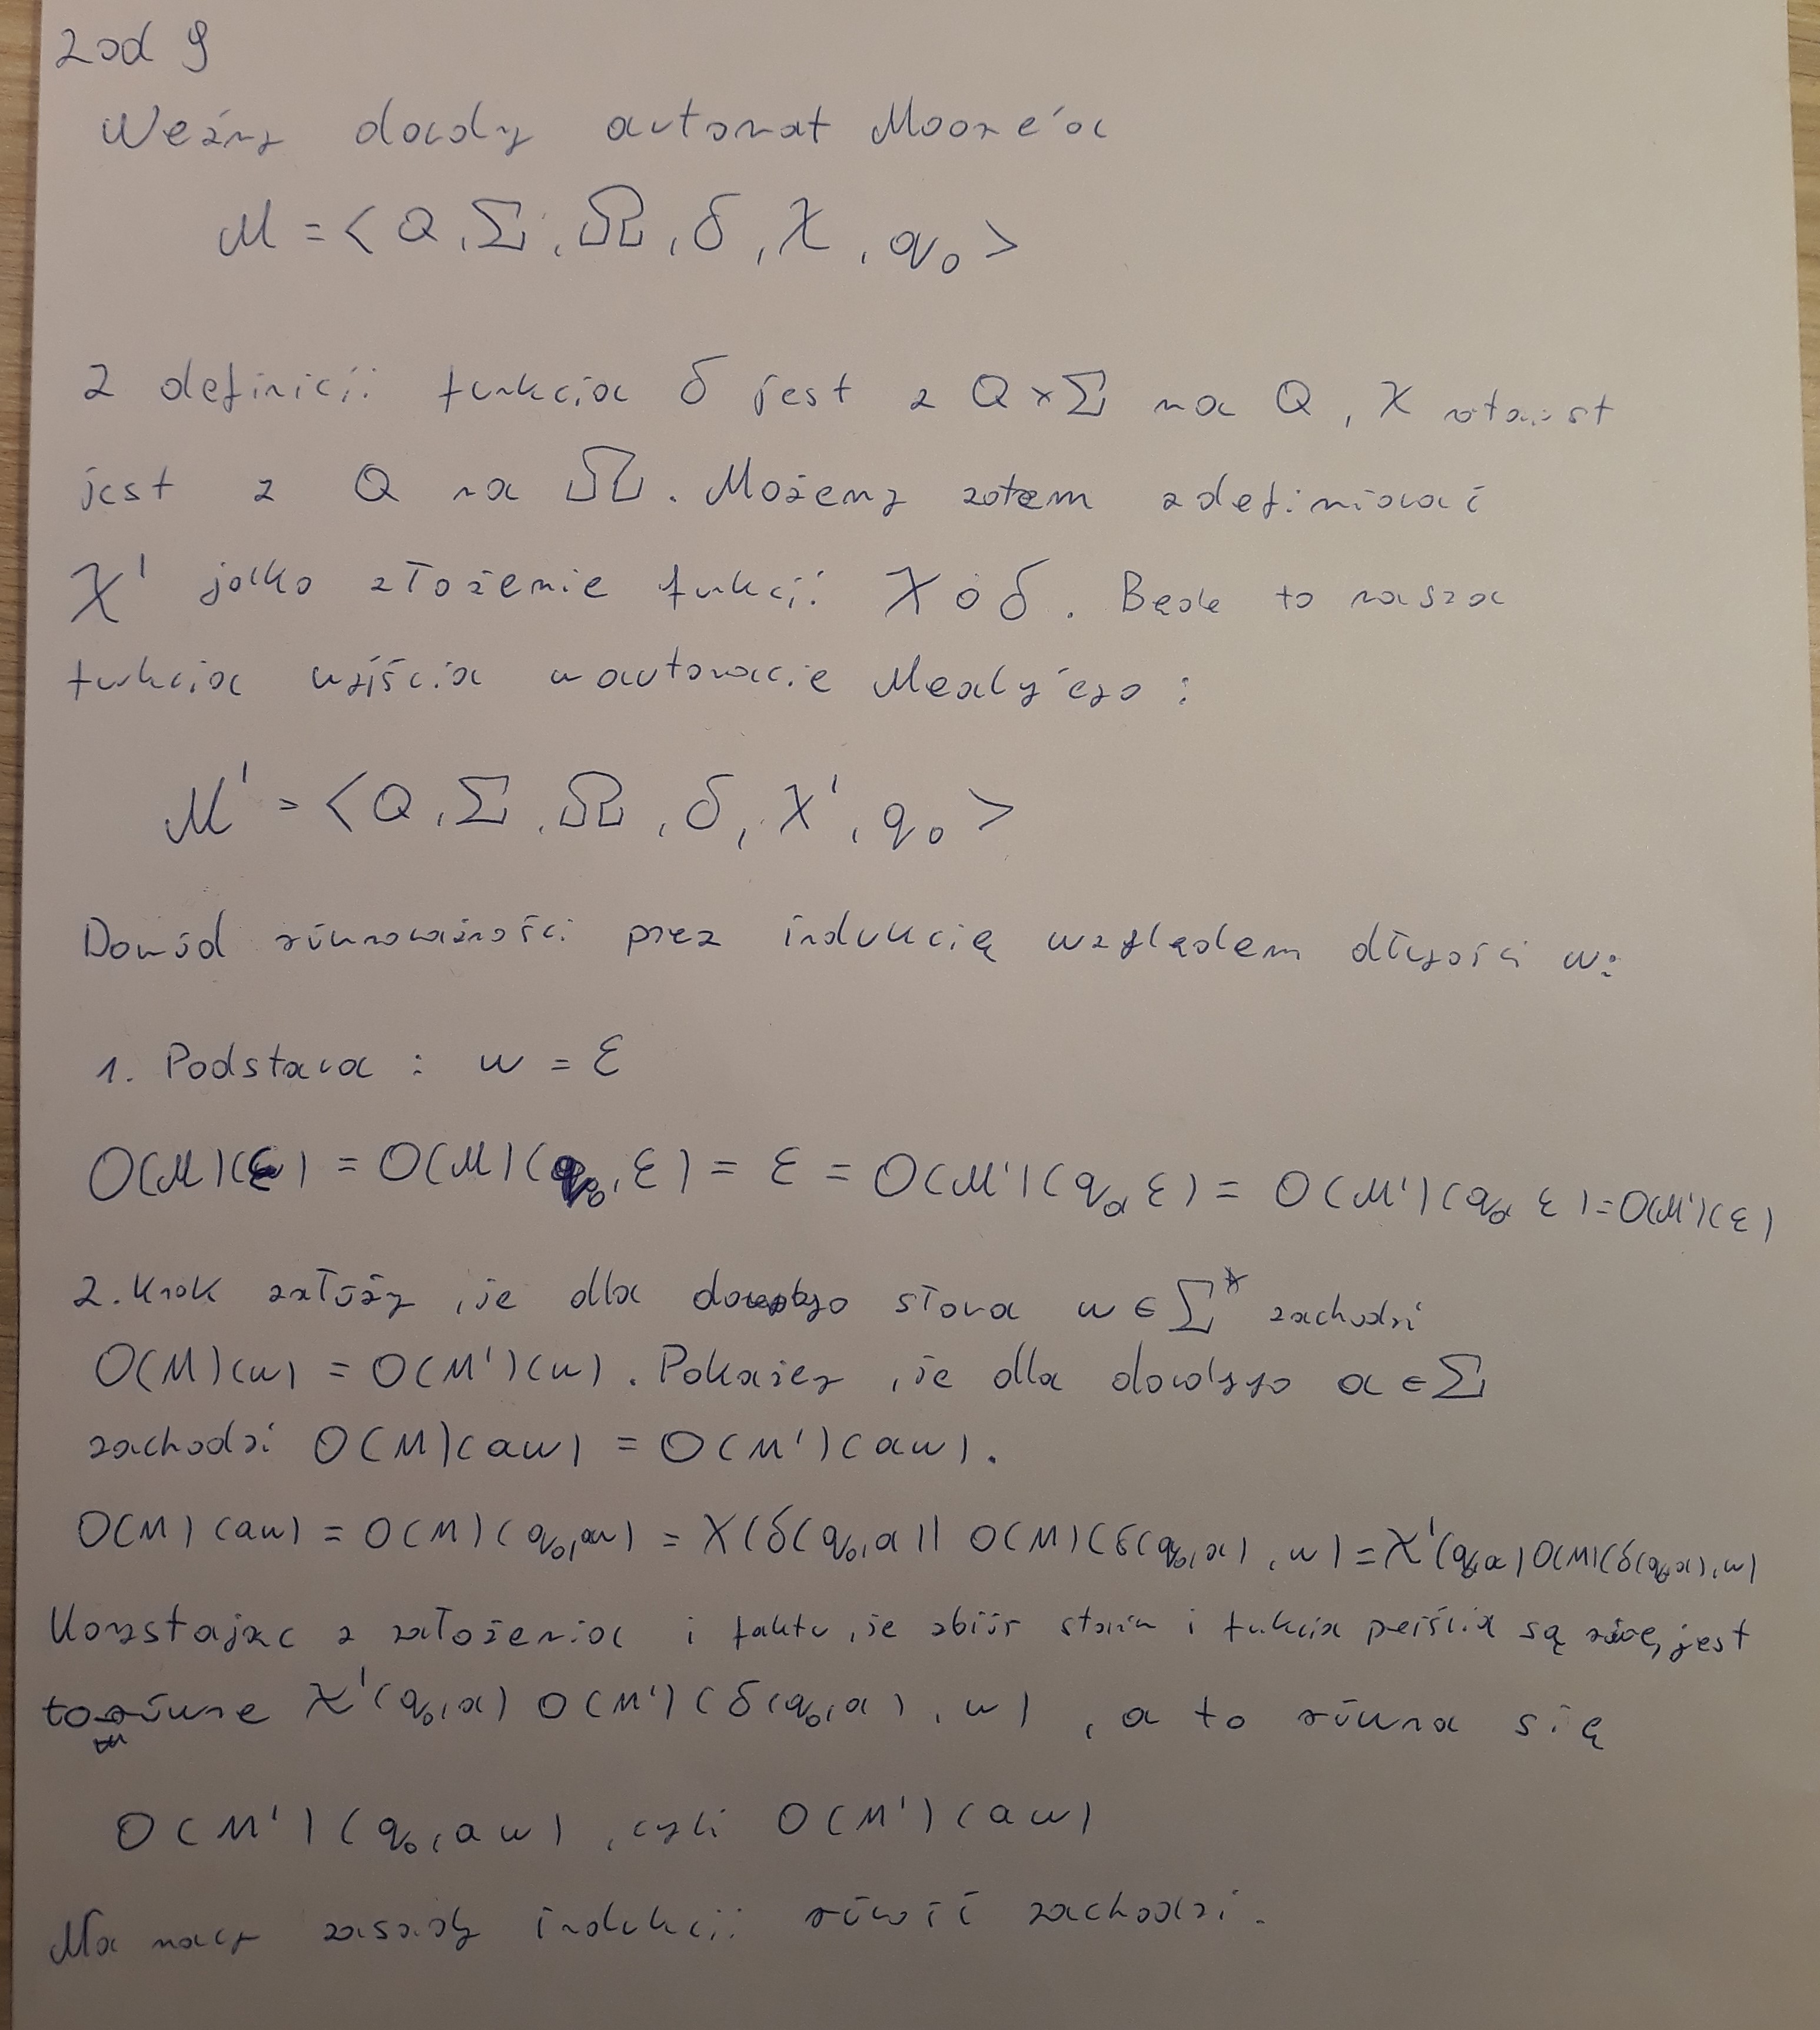 Zad 9
Weźmy dowolny automat Moore'a
M = < Q, Σ, Ω, δ, χ, q₀ >
Z definicji funkcja δ jest z Q×Σ na Q, χ natomiast
jest z Q na Ω. Możemy zatem zdefiniować
χ' jako złożenie funkcji χ∘δ. Będzie to nasza
funkcja wyjścia w automacie Mealy'ego :
M' = < Q, Σ, Ω, δ, χ', q₀ >
Dowód równoważności przez indukcję względem długości w:
1. Podstawa : w = ε
O(M)(ε) = O(M)(q₀, ε) = ε = O(M')(q₀, ε) = O(M')(q₀, ε) = O(M')(ε)
2. Krok załóżmy, że dla dowolnego słowa w ∈ Σ* zachodzi
O(M)(w) = O(M')(w). Pokażemy, że dla dowolnego a ∈ Σ
zachodzi O(M)(aw) = O(M')(aw).
O(M)(aw) = O(M)(q₀, aw) = χ(δ(q₀, a)) O(M)(δ(q₀, a), w) = χ'(q₀, a) O(M)(δ(q₀, a), w)
Korzystając z założenia i faktu, że zbiór stanów i funkcja przejścia są równe, jest
to równe χ'(q₀, a) O(M')(δ(q₀, a), w), a to równa się
O(M')(q₀, aw), czyli O(M')(aw)
Na mocy zasady indukcji równość zachodzi.